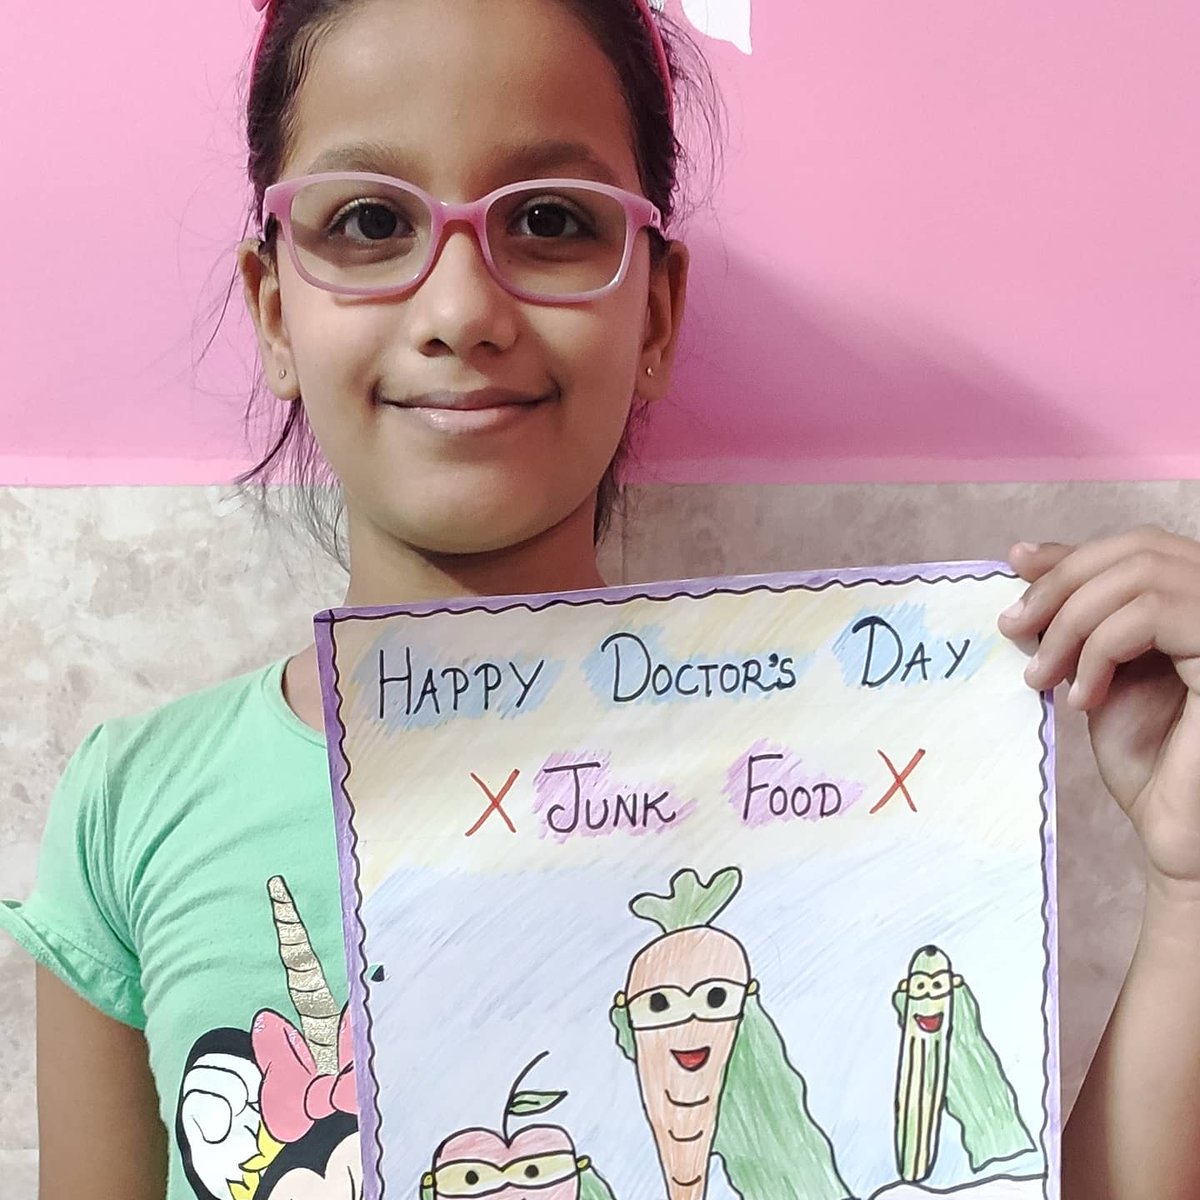 HAPPY DOCTOR'S DAY
X JUNK FOOD X